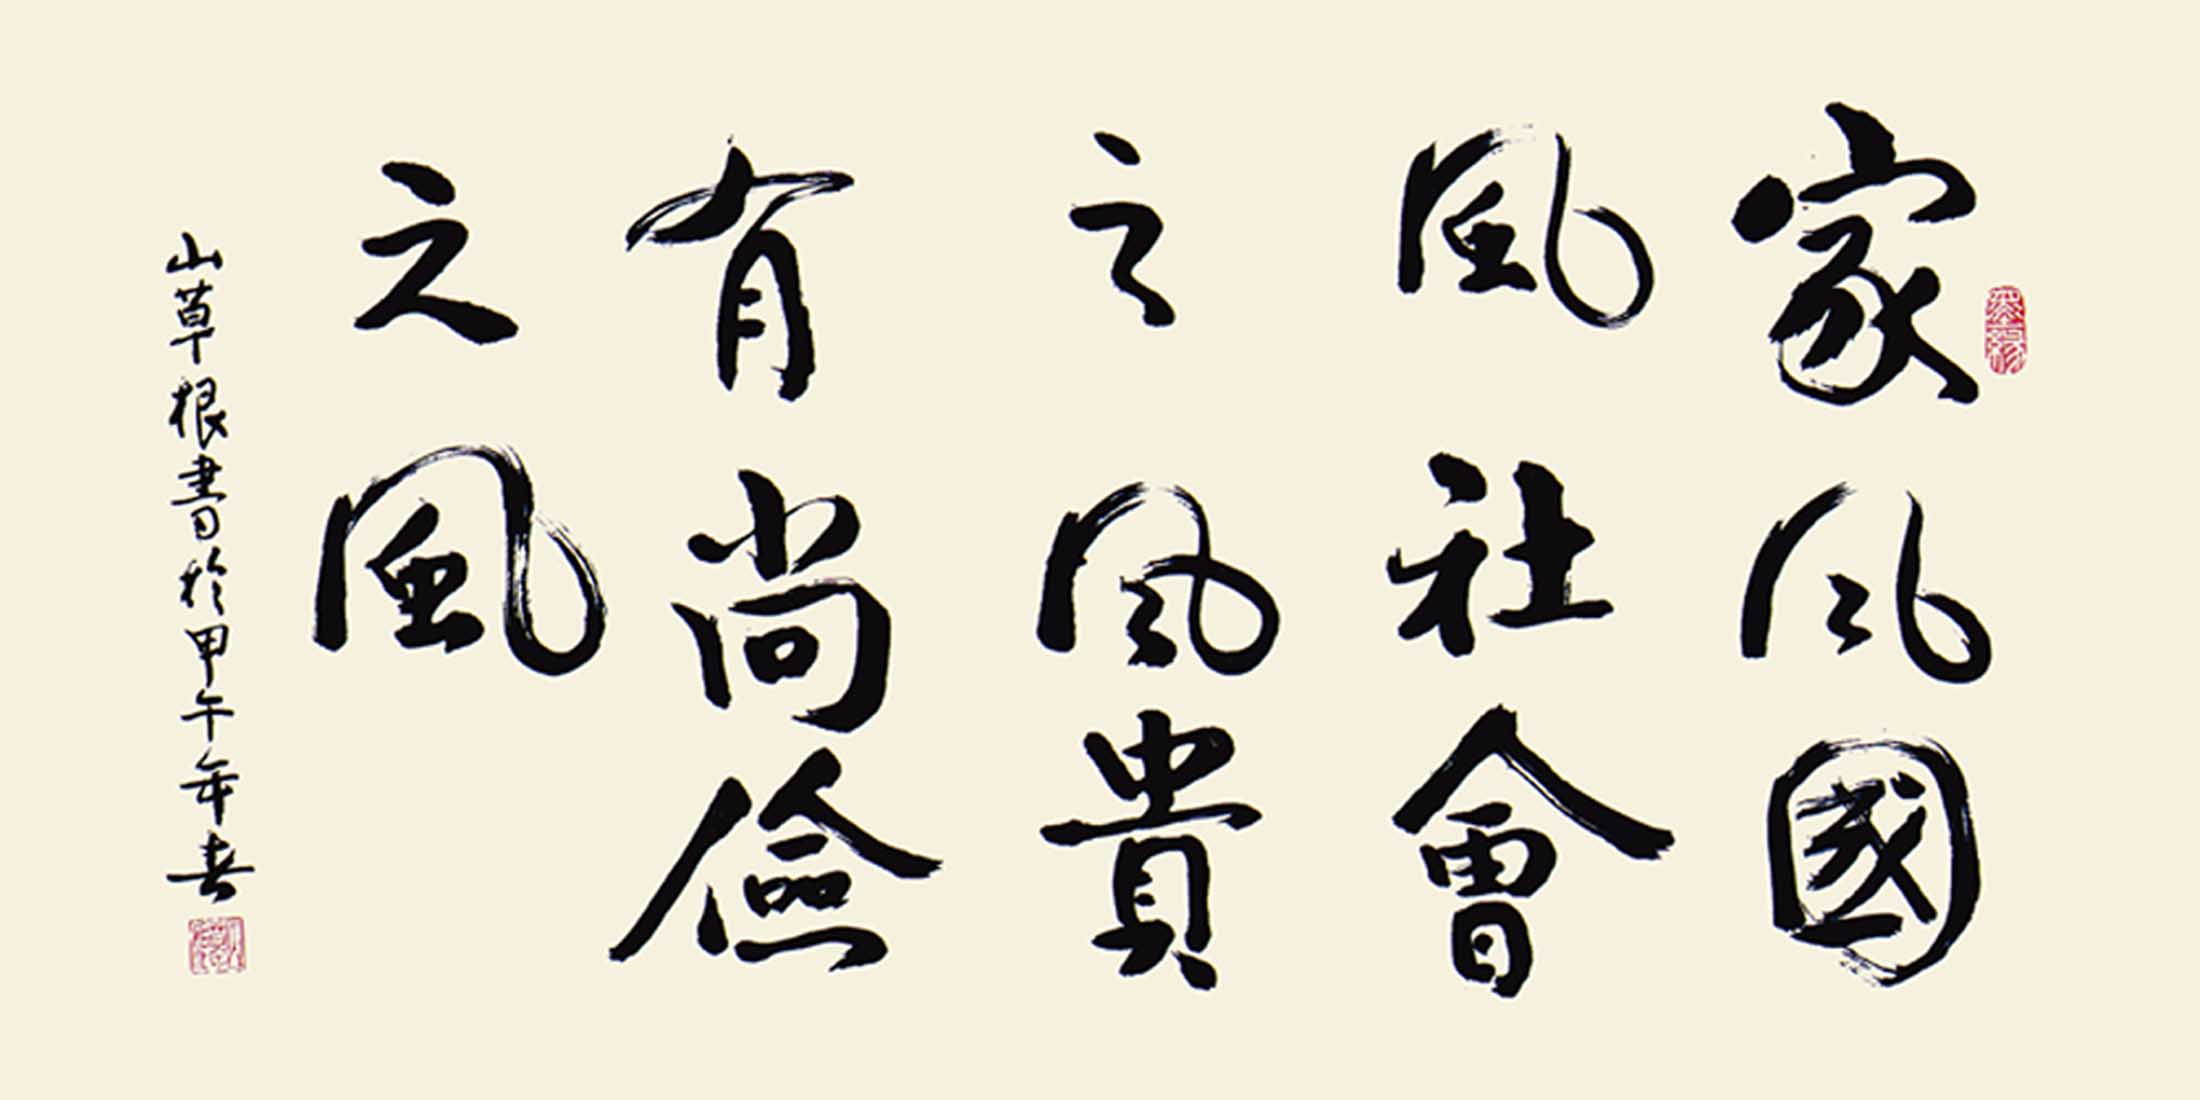 家風國
風社會
之風貴
有尚儉
之風
山草根書於甲午年春